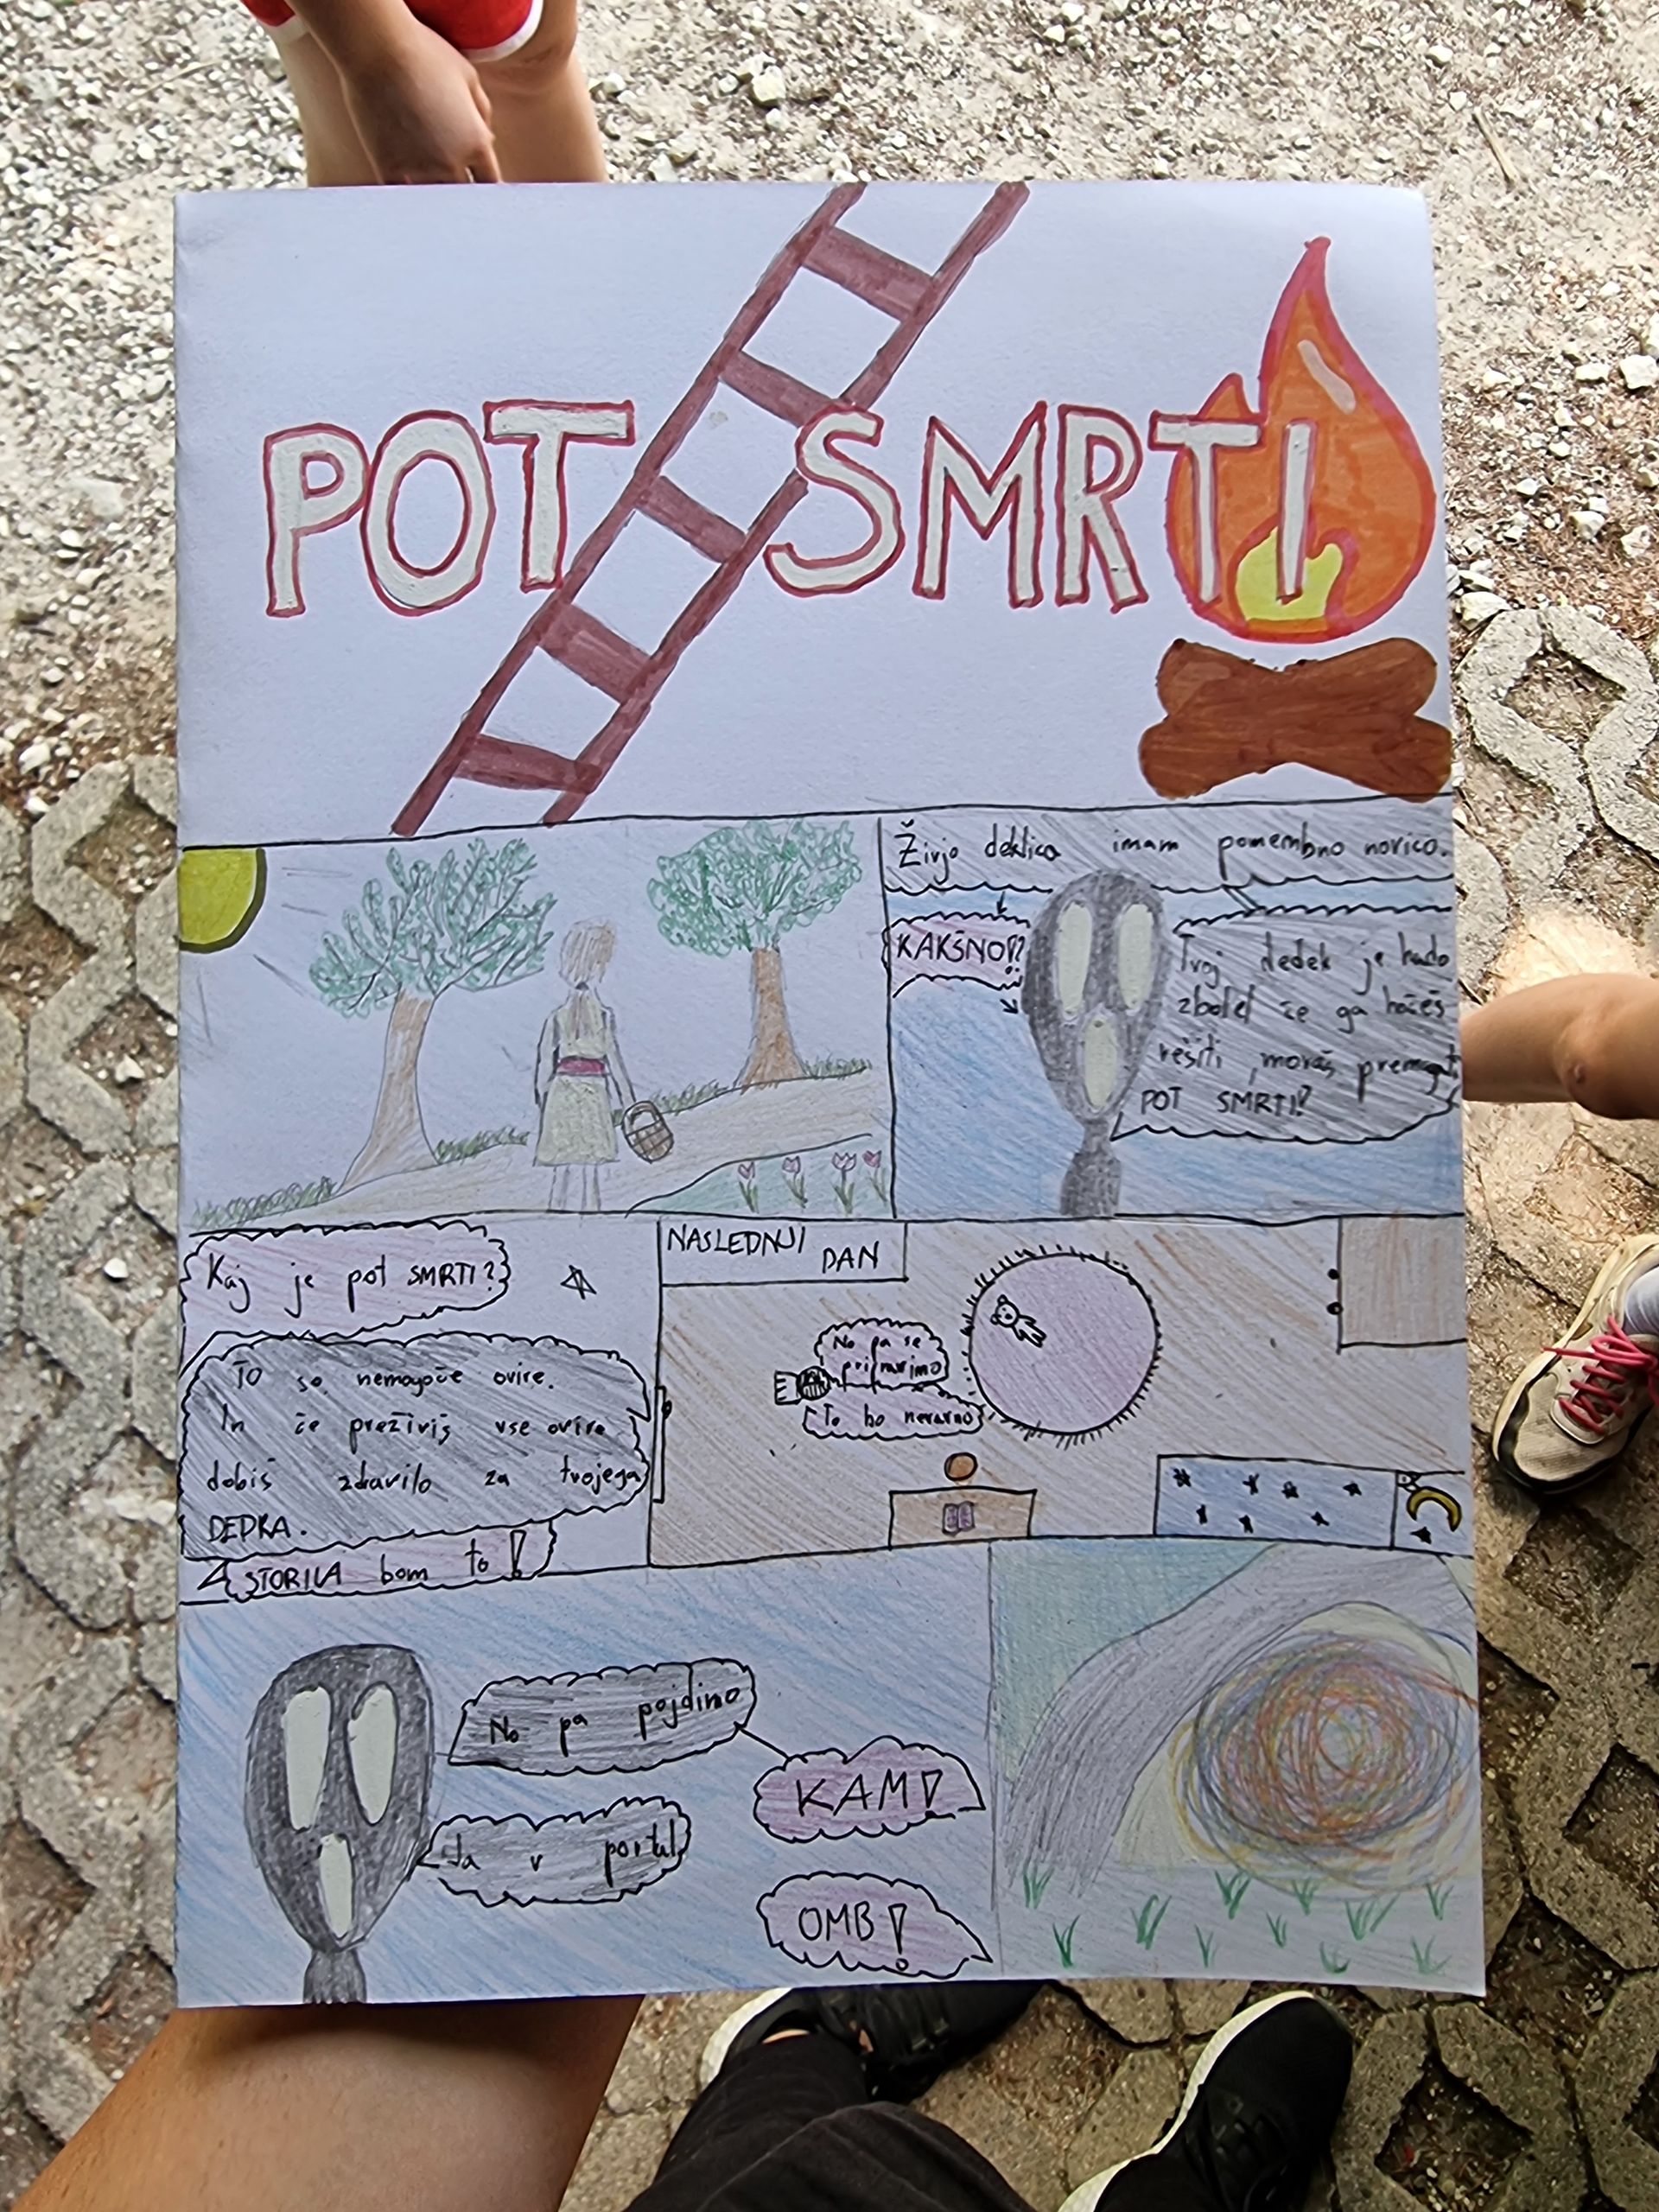 POT SMRTI
Živjo deklica imam pomembno novico.
KAKŠNO!?
Tvoj dedek je hudo
zbolel če ga hočeš
rešiti, moraš premagati
POT SMRTI!
Kaj je pot SMRTI?
TO so nemogoče ovire.
In če preživiš vse ovire
dobiš zdravilo za tvojega
DEDKA.
STORILA bom to!
NASLEDNJI DAN
No pa se
To bo nevarno
No pa pojdimo
KAM!
Ja v portal
OMB!